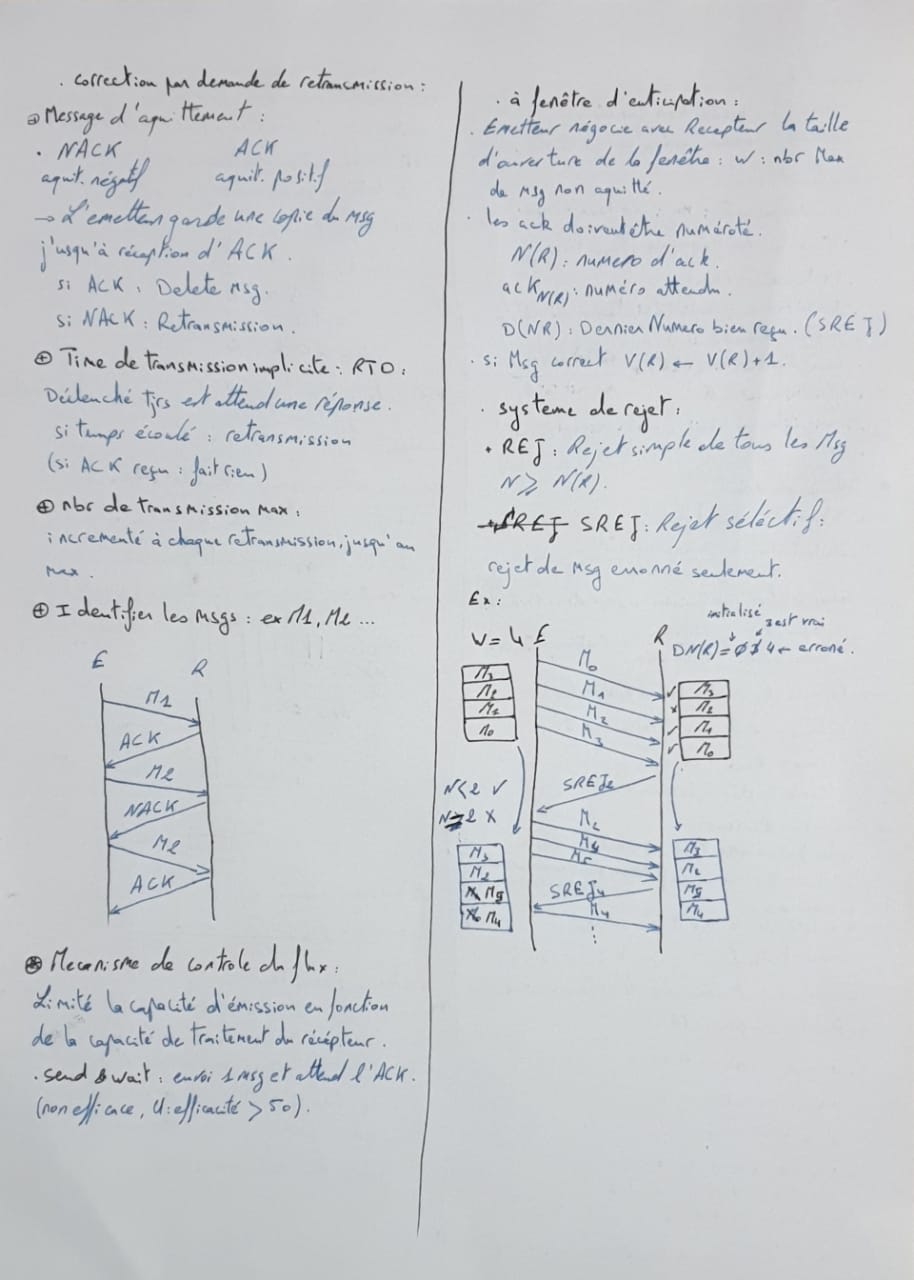 . correction par demande de retrancmission :
⊕ Message d'aquittement :
. NACK ACK
aquit. négatif aquit. positif
→ L'emetteur garde une copie du msg
j'usqu'à réception d'ACK.
si ACK : Delete msg.
si NACK : Retransmission.
⊕ Time de transmission implicite : RTO :
Déclenché tjrs est attend une réponse.
si temps écoulé : retransmission
(si ACK reçu : fait rien)
⊕ nbr de transmission max :
incrementé à chaque retransmission, jusqu'au
max.
⊕ Identifier les msgs : ex M1, M2 ...
E R
M1
ACK
M2
NACK
M2
ACK
⊛ Mecanisme de controle du flux :
Limité la capacité d'émission en fonction
de la capacité de traitement du récépteur.
. send & wait : envoi 1 msg et attend l'ACK.
(non efficace, U : efficacité > 50).
. à fenêtre d'enticipation :
. Emetteur négocie avec Recepteur la taille
d'ouverture de la fenêtre : W : nbr Max
de Msg non aquitté.
. les ack doivent être numéroté.
N(R) : numero d'ack.
ack N(R) : numéro attendu.
D(NR) : Dernier Numero bien reçu. (SREJ)
. si Msg correct V(R) ← V(R)+1.
. systeme de rejet :
+ REJ : Rejet simple de tous les Msg
N ≥ N(R).
+ SREJ SREJ : Rejet séléctif :
rejet de Msg erronné seulement.
Ex :
initialisé
3 est vrai
W = 4 E R DN(R) = 0 3 4 ← erroné.
M0
M3 M3
M1
M2 M2
M2
M1 M1
M3
M0 M0
SREJ2
N<2 ✓
N≥2 x
M2
M4
M5
M3 M3
M2 M2
M5 M5
SREJ4
M4 M4
M4
⋮